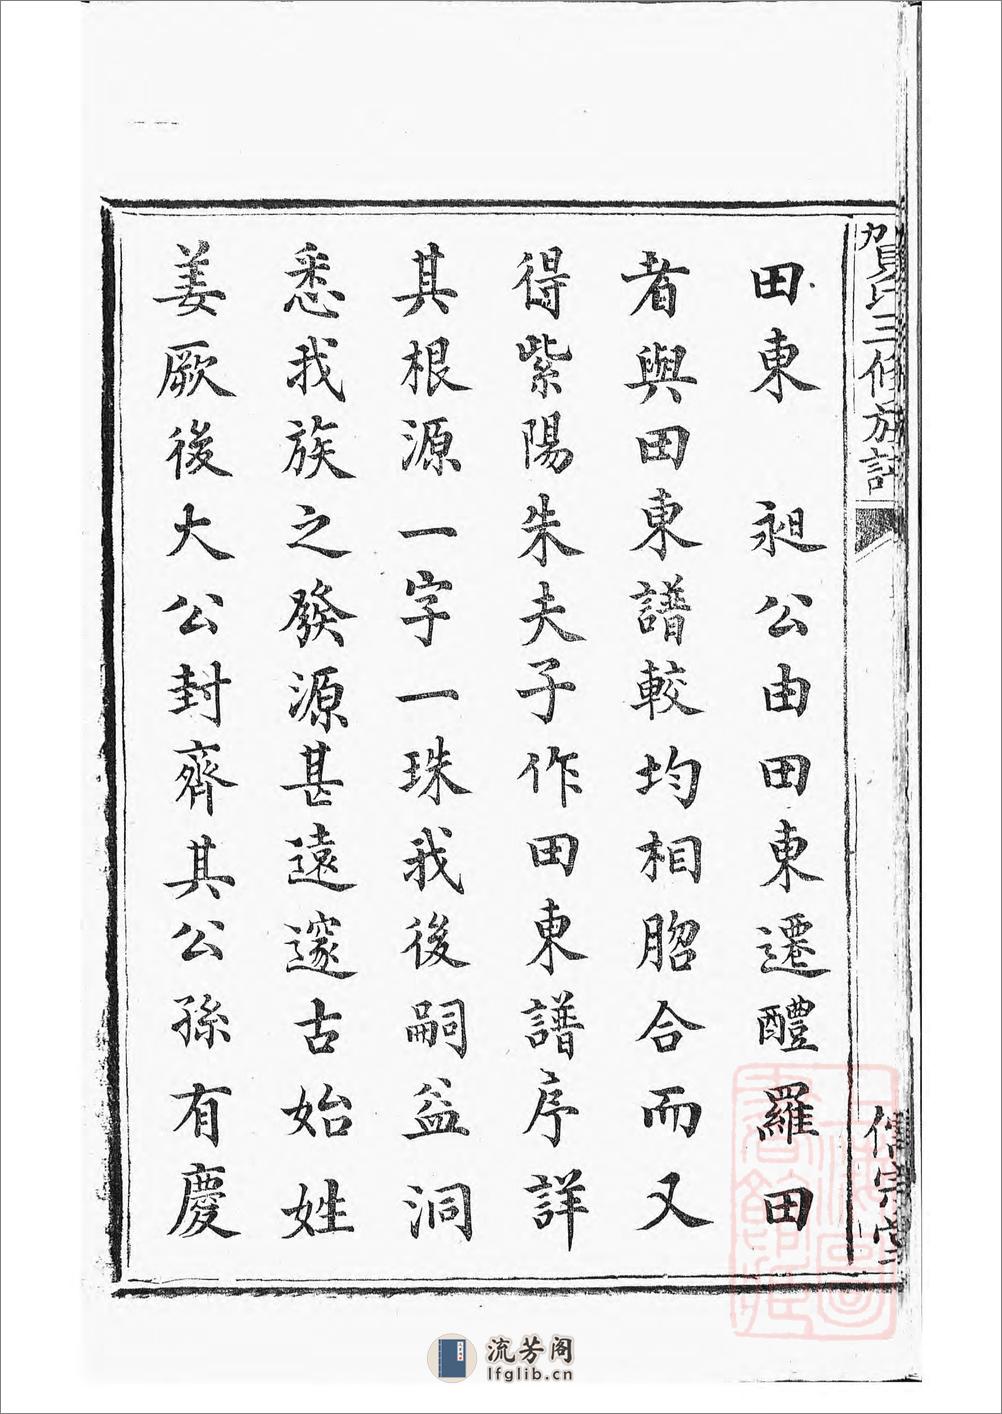 賀氏三修族譜
田東　昶公由田東遷醴羅田
者與田東譜較均相腳合而又
得紫陽朱夫子作田東譜序詳
其根源一字一珠我後嗣益洞
悉我族之發源甚遠邃古始姓
姜厥後大公封齊其公孫有慶
流芳阁
lfglib.cn